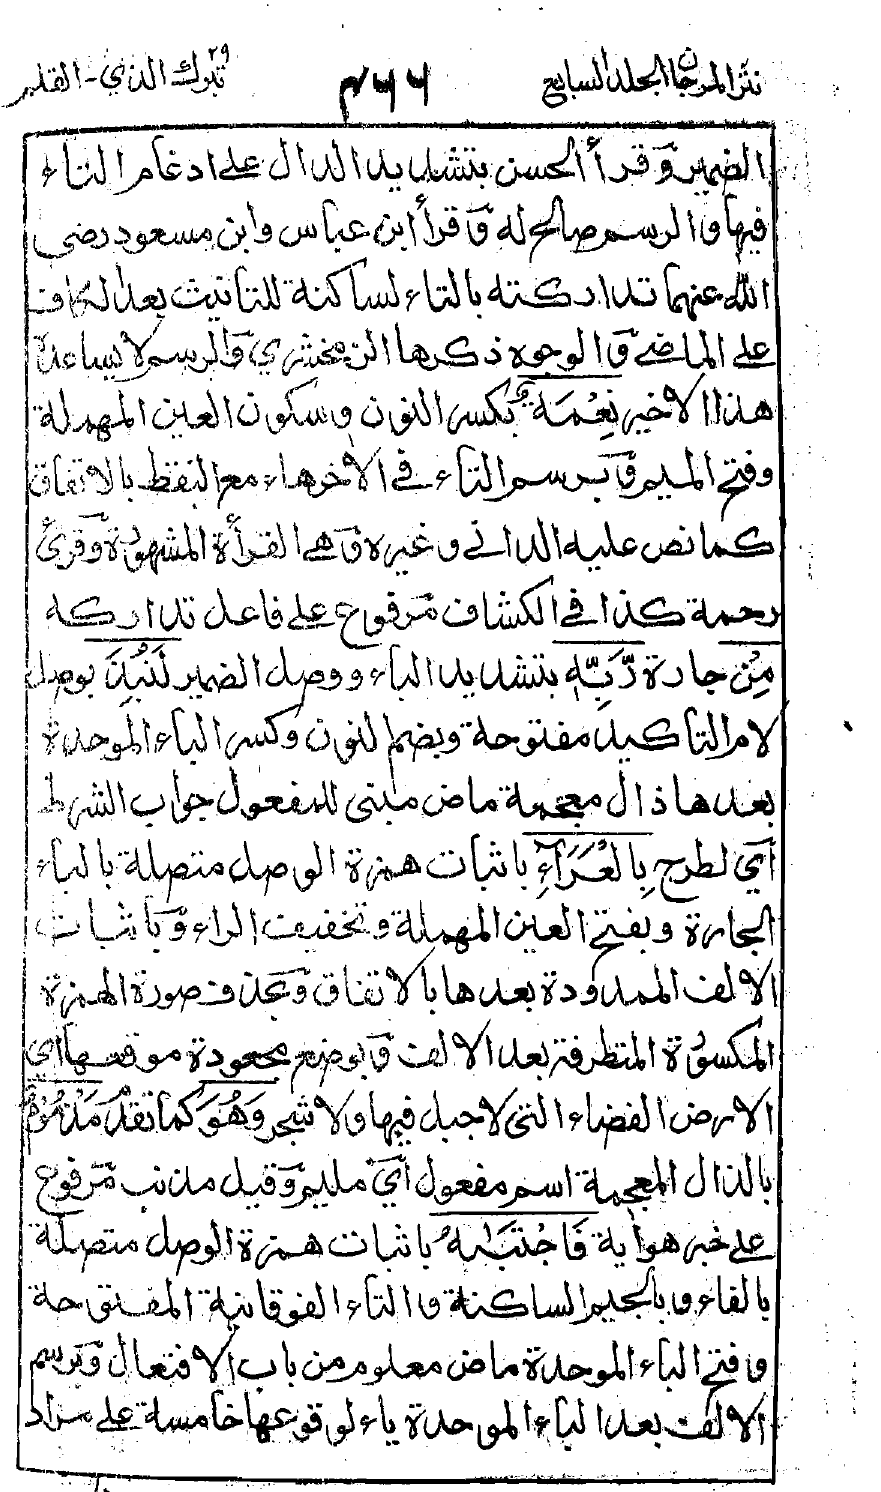 نثر المرجان الجلد السابع ٤٦٦ تبرك الذي ٢٩ - القلم
الضمير وَقرأ الحسن بتشديد الدال على ادغام التاء
فيها والرسم صالح له وَقرأ ابن عباس وابن مسعود رضى
الله عنهما تداركته بالتاء لساكنة للتانيث بعد الكاف
على الماضي وَالوجوه ذكرها الزمخشري وَالرسم لا يساعده
هذا الاخير نِعْمَةٌ بكسر النون وسكون العين المهملة
وفتح الميم وَبرسم التاء في الآخر هاء مع النقط بالاتفاق
كما نص عليه الداني وغيره وَهي القرأة المشهورة وَقرئ
رحمة كذا في الكشاف مَرفوع على فاعل تداركه
مِنْ جارة رَّبِّهٖ بتشديد الباء ووصل الضمير لَنُبِذَ بوصل
لام التاكيد مفتوحة وبضم النون وكسر الباء الموحدة
بعدها ذال معجمة ماض مبنى للمفعول جواب الشرط
اَي لطرح بِالْعَرَآءِ باثبات همزة الوصل متصلة بالباء
الجارة وبفتح العين المهملة وتخفيف الراء وَباثبات
الالف الممدودة بعدها بالاتفاق وَبحذف صورة الهمزة
المكسورة المتطرفة بعد الالف وَبوضع مجعودة موقعها اي
الارض الفضاء التي لا جبل فيها ولا شجر وَهُوَ كما تقدم مَذْمُوْمٌ
بالذال المعجمة اسم مفعول اَي مليم وَقيل مذنب مَرفوع
على خبر هو اٰية فَاجْتَبٰىهُ باثبات همزة الوصل متصلة
بالفاء وبالجيم الساكنة والتاء الفوقانية المفتوحة
وفتح الباء الموحدة ماض معلوم من باب الافتعال وَبرسم
الالف بعد الباء الموحدة ياء لوقوعها خامسة على مراد